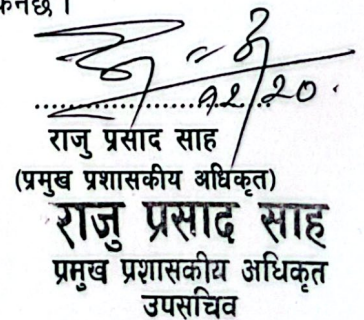 १२/२०
राजु प्रसाद साह
(प्रमुख प्रशासकीय अधिकृत)
राजु प्रसाद साह
प्रमुख प्रशासकीय अधिकृत
उपसचिव